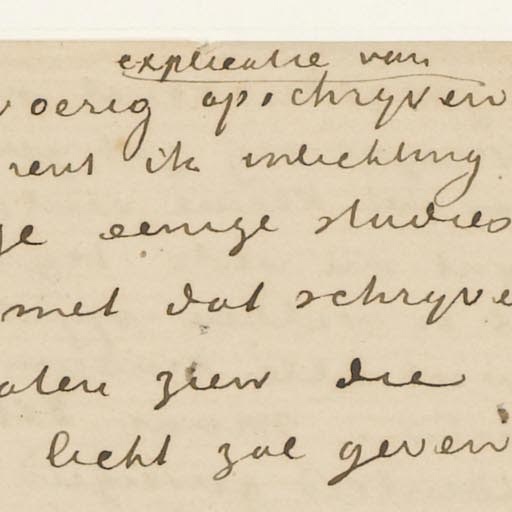 explicatie van
voerig opschryven
rent ik inlichting
je eenige studies
met dat schryve
aten zien die
licht zal geven